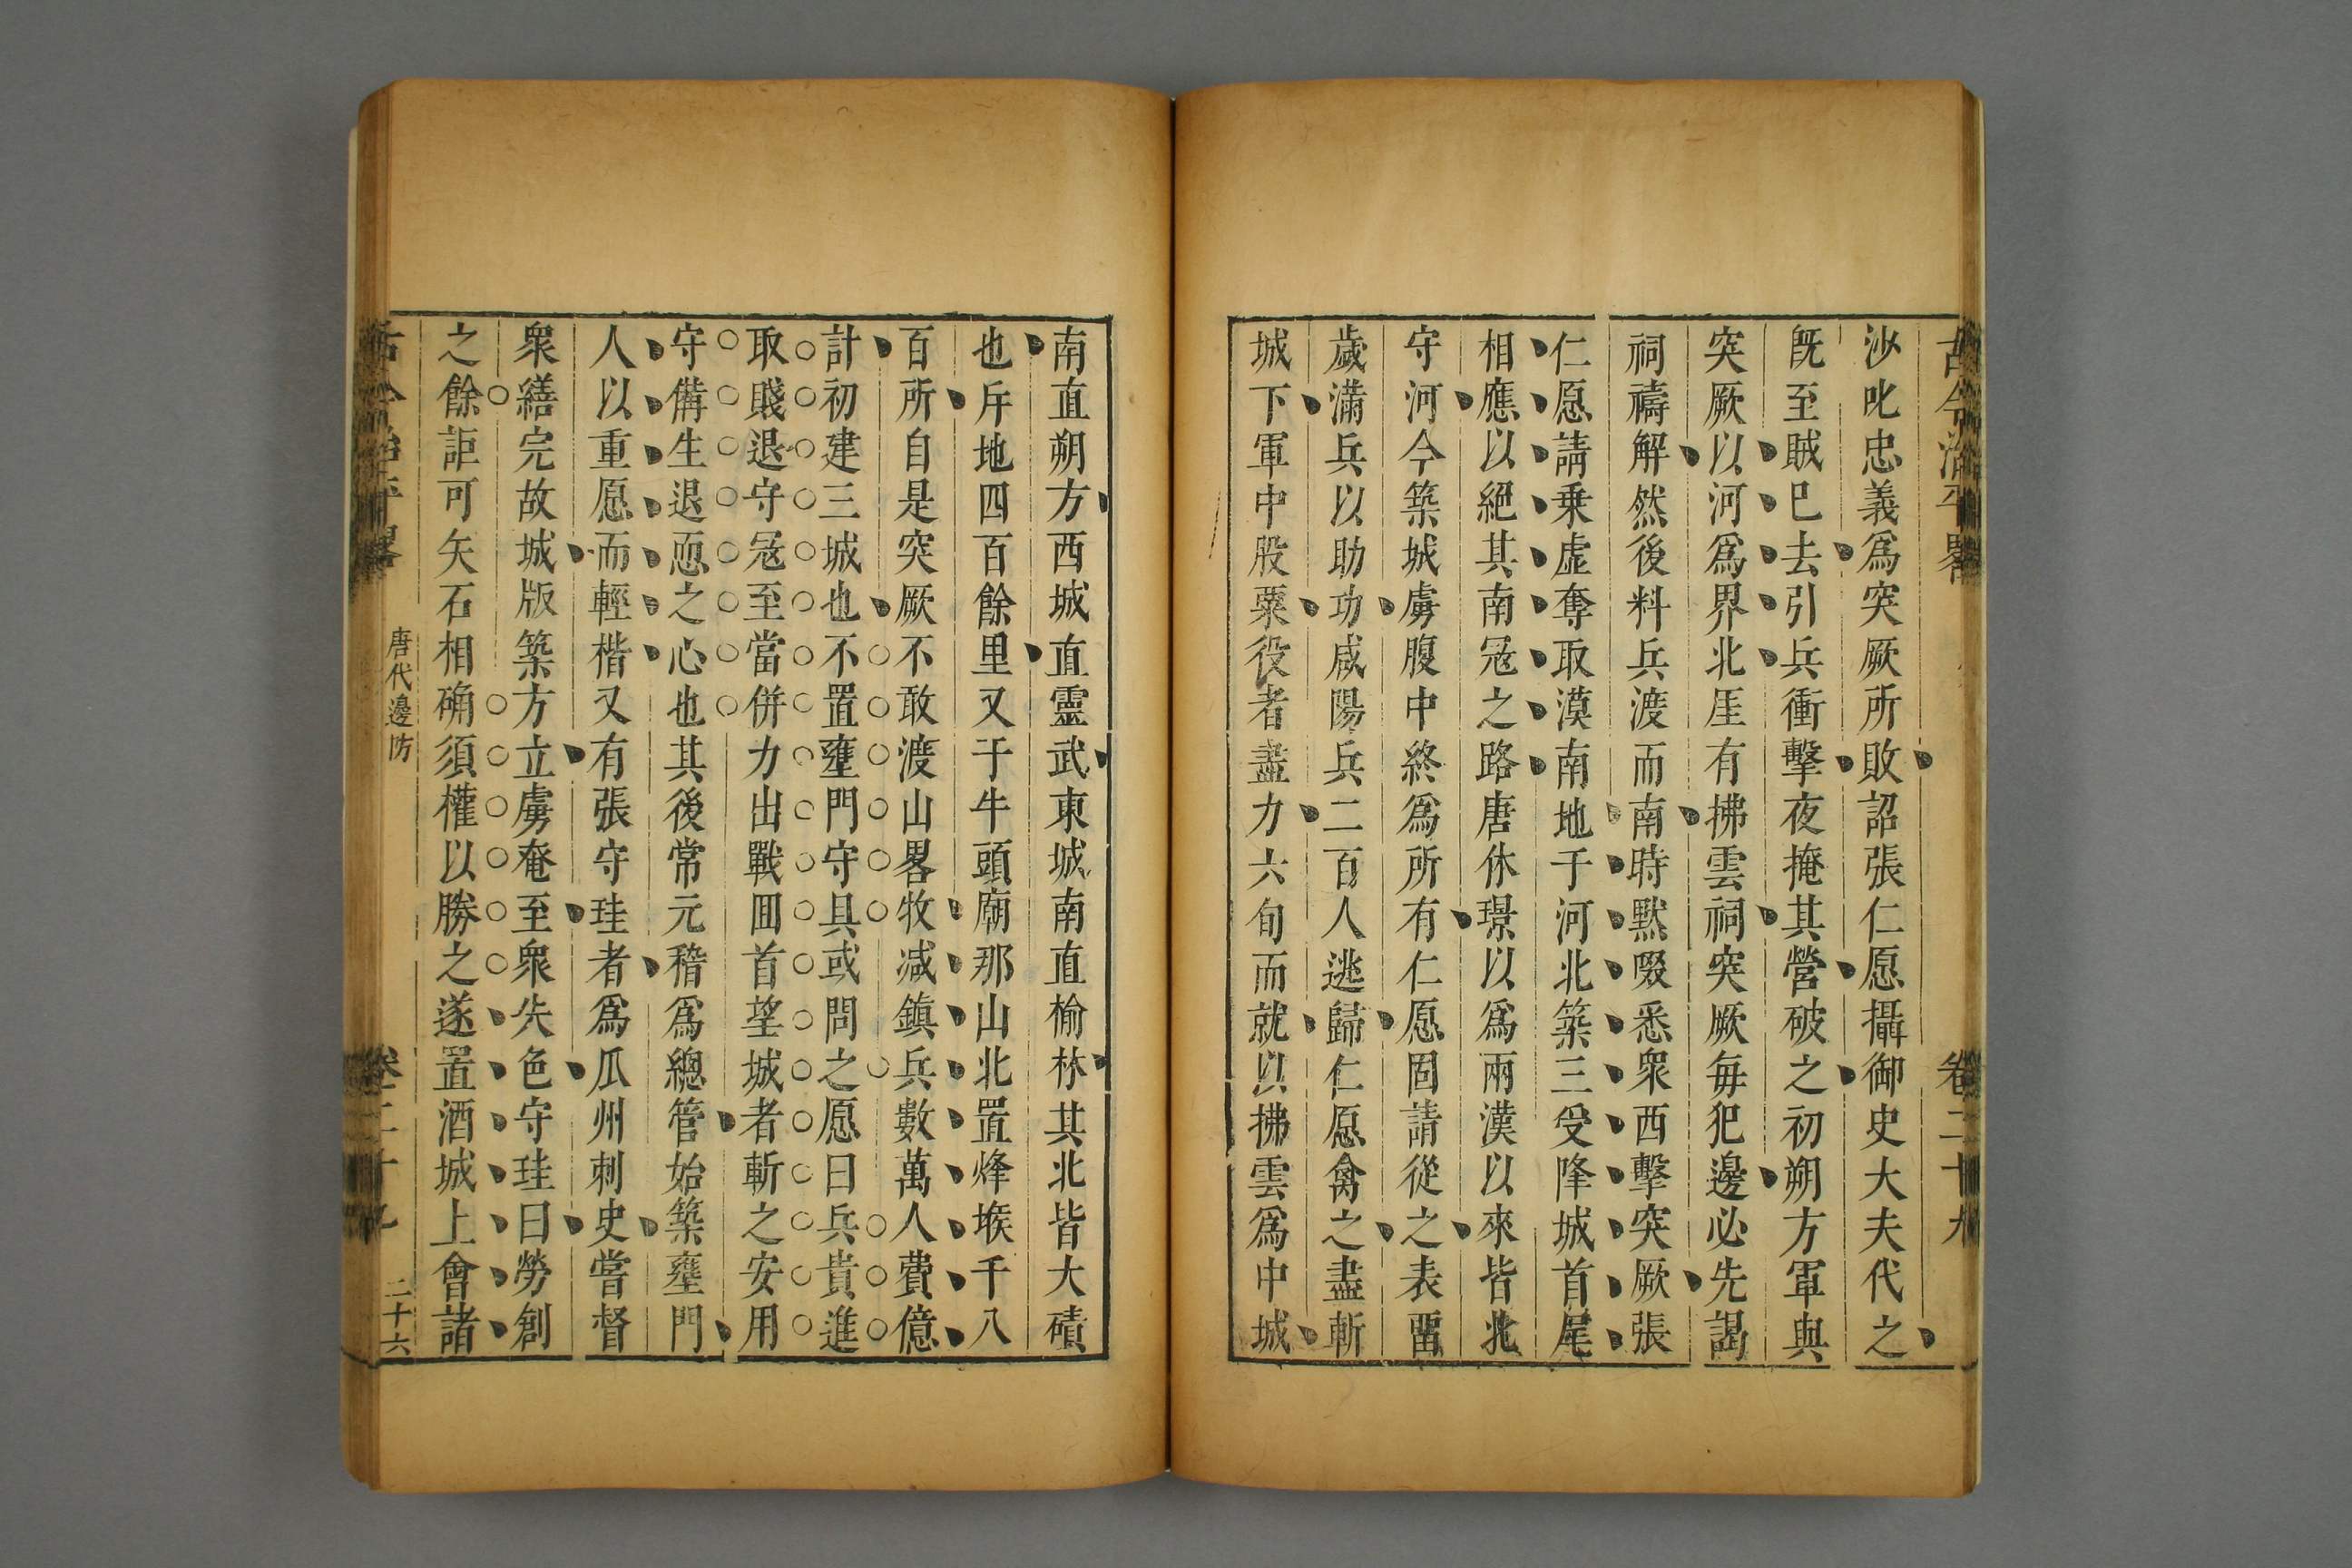 古今治平畧 卷二十九
沙叱忠義爲突厥所敗詔張仁愿攝御史大夫代之
旣至賊已去引兵衝擊夜掩其營破之初朔方軍與
突厥以河爲界北厓有拂雲祠突厥每犯邊必先謁
祠禱解然後料兵渡而南時默啜悉衆西擊突厥張
仁愿請乗虛奪取漠南地于河北築三受降城首尾
相應以絕其南冦之路唐休璟以爲兩漢以來皆北
守河今築城虜腹中終爲所有仁愿固請從之表畱
歲滿兵以助功咸陽兵二百人逃歸仁愿禽之盡斬
城下軍中股栗役者盡力六旬而就以拂雲爲中城
南直朔方西城直靈武東城南直榆林其北皆大磧
也斥地四百餘里又于牛頭廟那山北置烽堠千八
百所自是突厥不敢渡山畧牧减鎮兵數萬人費億
計初建三城也不置壅門守具或問之愿曰兵貴進
取賤退守冦至當併力出戰囬首望城者斬之安用
守備生退恧之心也其後常元稽爲總管始築壅門
人以重愿而輕楷又有張守珪者爲瓜州刺史嘗督
衆繕完故城版築方立虜奄至衆失色守珪曰勞創
之餘詎可矢石相确須權以勝之遂置酒城上會諸
古今治平畧 唐代邊防 卷二十九 二十六